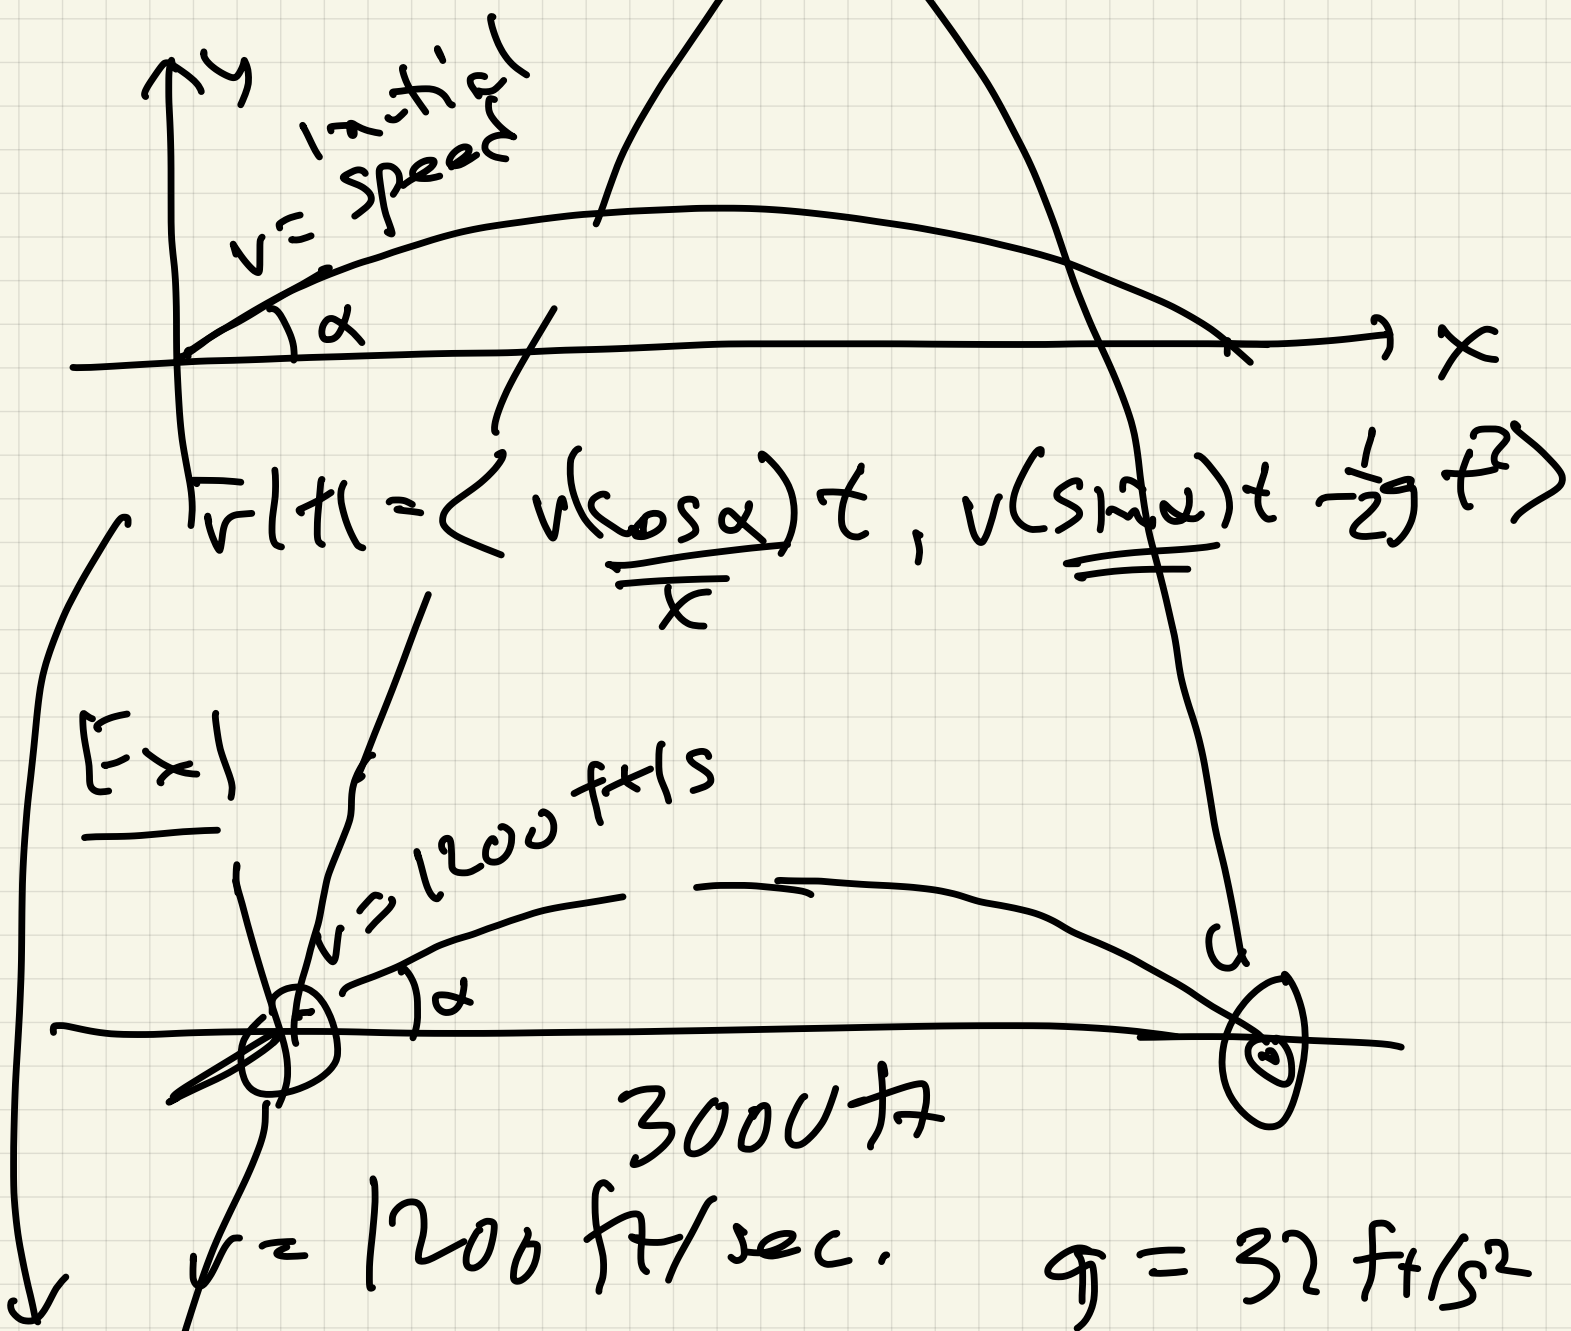 y
v = initial speed
α
x
r(t) = ⟨ v(cos α)t , v(sin α)t - 1/2 g t² ⟩
x
Ex 1
v = 1200 ft/s
α
3000 ft
v = 1200 ft/sec.
g = 32 ft/s²